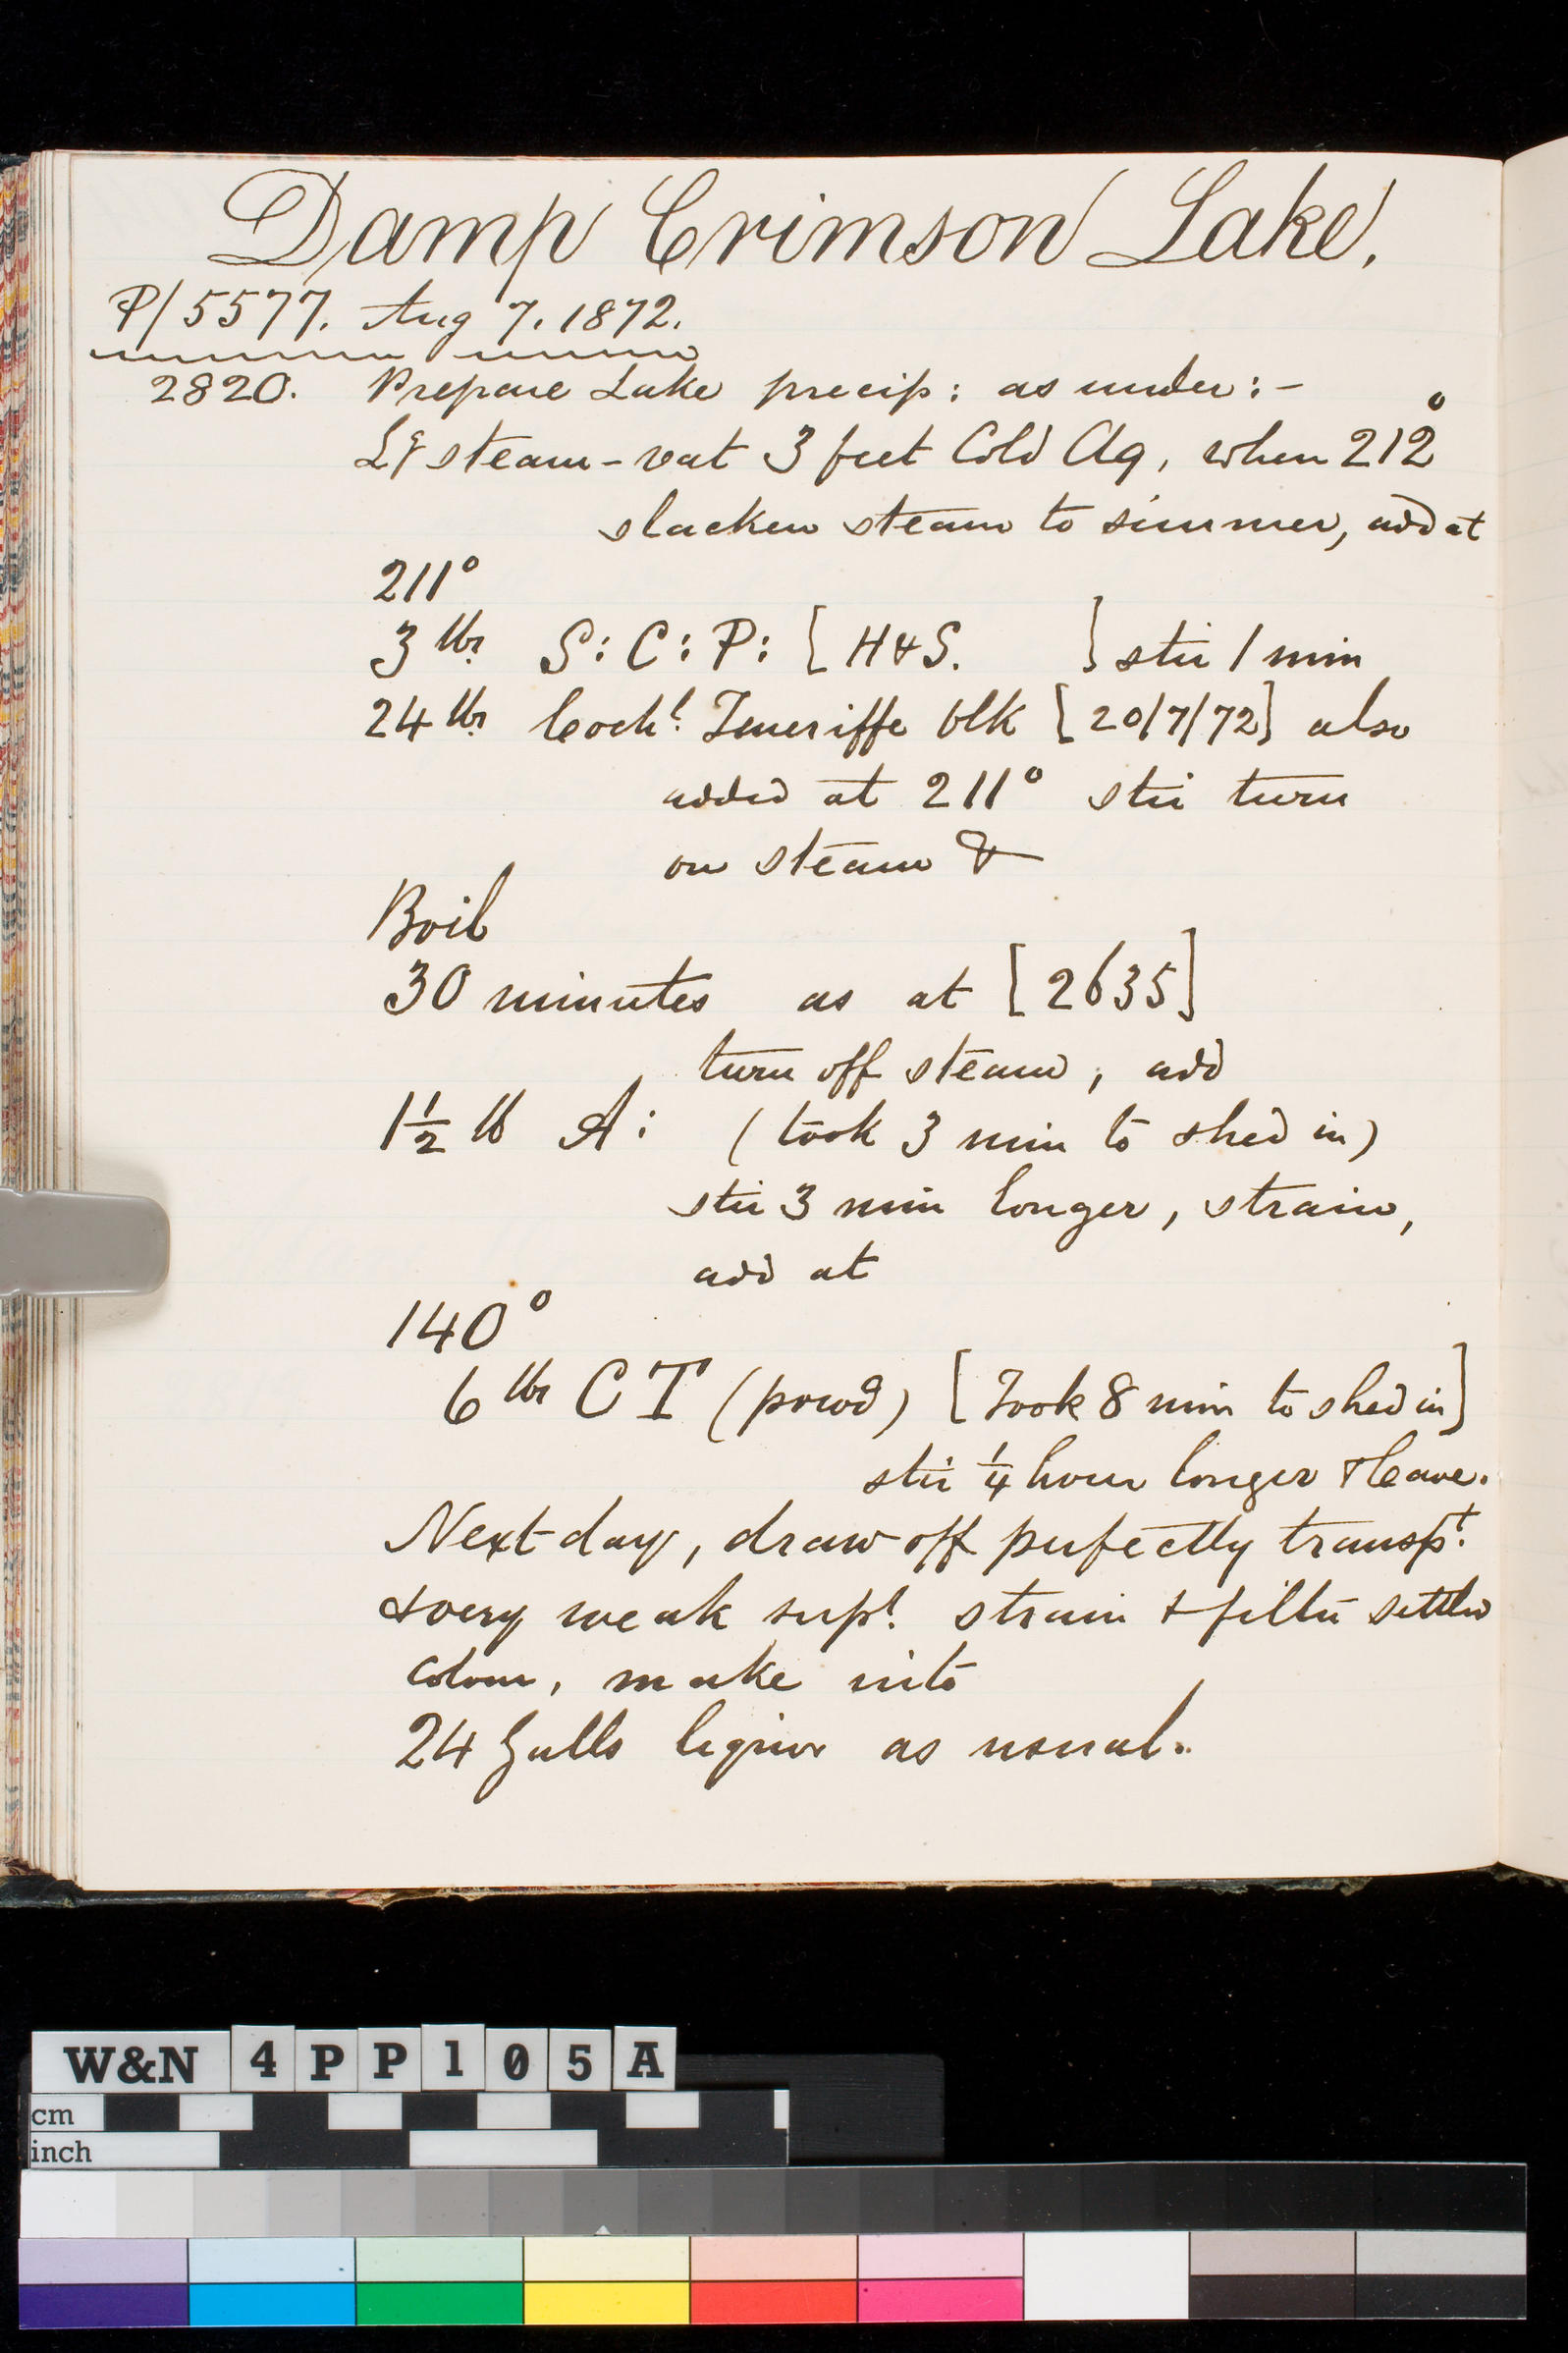 Damp Crimson Lake,
P/5577. Aug 7. 1872.
2820. Prepare Lake precip: as under:-
steam-vat 3 feet Cold Aq, when 212°
slacken steam to simmer, add at
211°
3 lbs S: C: P: [H&S. ] stir 1 min
24 lbs Cochl Teneriffe blk [20/7/72] also
added at 211° stir turn
on steam &
Boil
30 minutes as at [2635]
turn off steam, add
1½ lb A: (took 3 min to shed in)
stir 3 min longer, strain,
add at
140°
6 lbs C T (powd) [Took 8 min to shed in]
stir ¼ hour longer & leave.
Next day, draw off perfectly transpt
& very weak supl strain & filter settled
colour, make into
24 Galls liquor as usual.
W&N 4PP105A
cm
inch